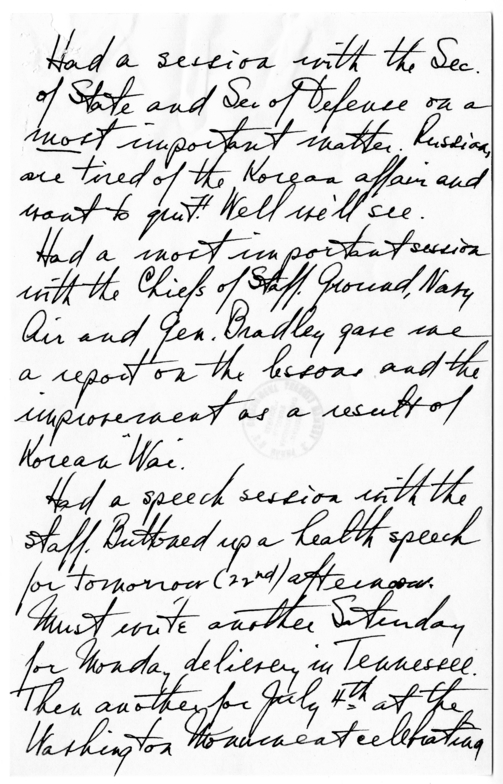 Had a session with the Sec.
of State and Sec of Defense on a
most important matter. Russians
are tired of the Korean affair and
want to quit! Well we'll see.
Had a most important session
with the Chiefs of Staff. Ground, Navy
Air and Gen. Bradley gave me
a report on the lessons and the
improvement as a result of
Korean "War.
Had a speech session with the
staff. Buttoned up a health speech
for tomorrow (22nd) afternoon.
Must write another Saturday
for Monday delivery in Tennessee.
Then another for July 4th at the
Washington Monument celebrating